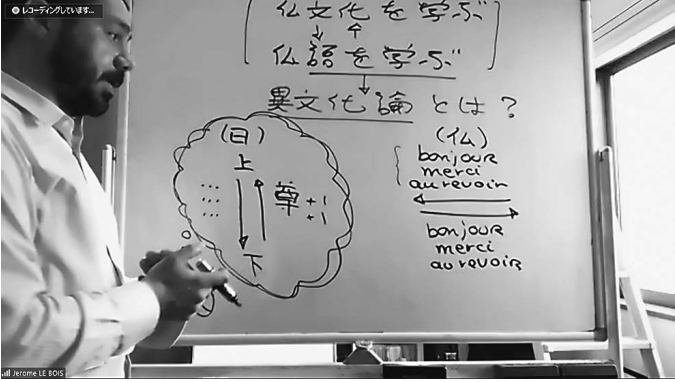 レコーディングしています...
仏文化を学ぶ
仏語を学ぶ
異文化論とは?
(日)
上
章 +1
+1
下
(仏)
bonjour
merci
au revoir
bonjour
merci
au revoir
Jerome LE BOIS